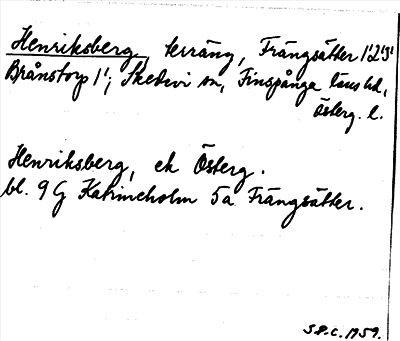 Henriksberg, terräng, Frängsätter 1¹2¹3¹
Brånstorp 1¹; Skedevi sn, Finspånga läns hd,
Österg. l.
Henriksberg, ek Österg.
bl. 9 G Katrineholm 5a Frängsätter.
S.P.C. 1959.